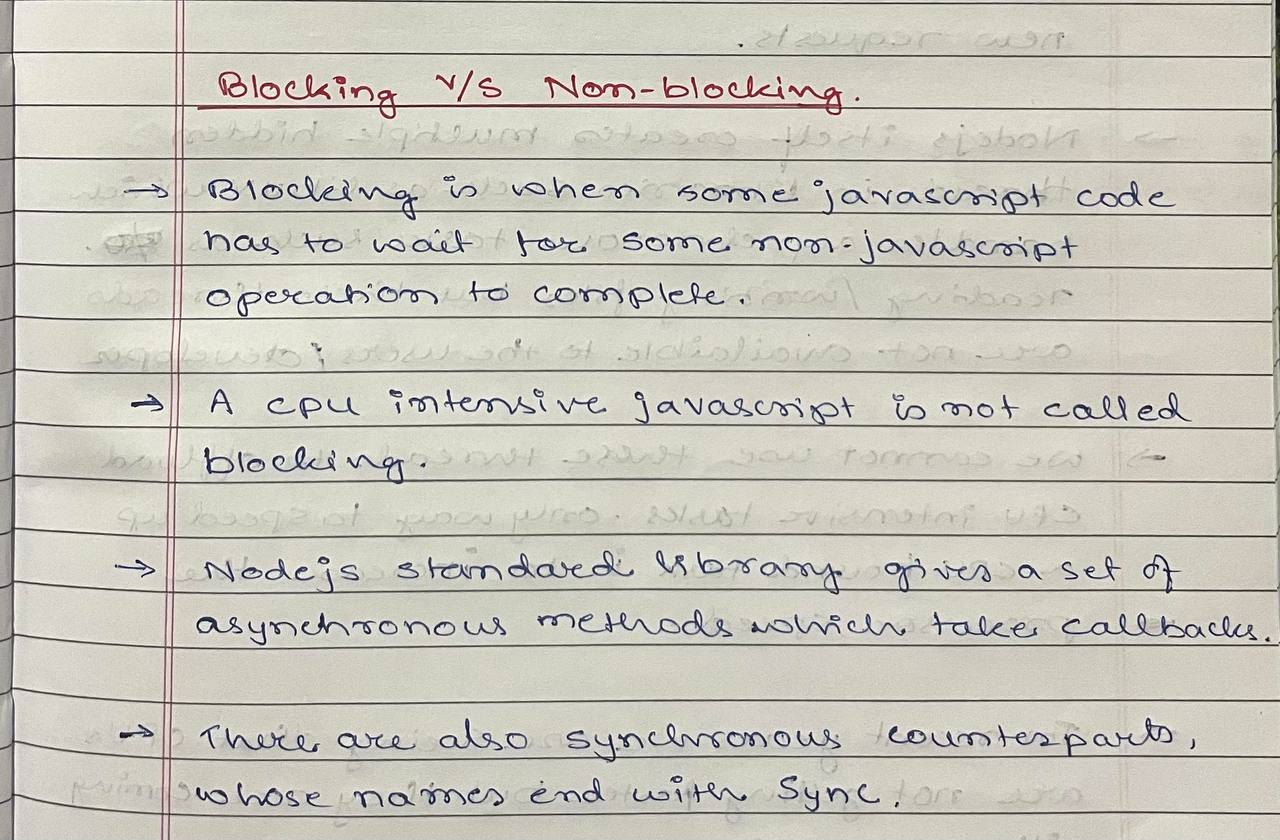 new requests.
Blocking v/s Non-blocking.
→ Blocking is when some javascript code
has to wait for some non-javascript
operation to complete.
→ A cpu intensive javascript is not called
blocking.
→ Nodejs standard library gives a set of
asynchronous methods which take callbacks.
→ There are also synchronous counterparts,
whose names end with Sync.